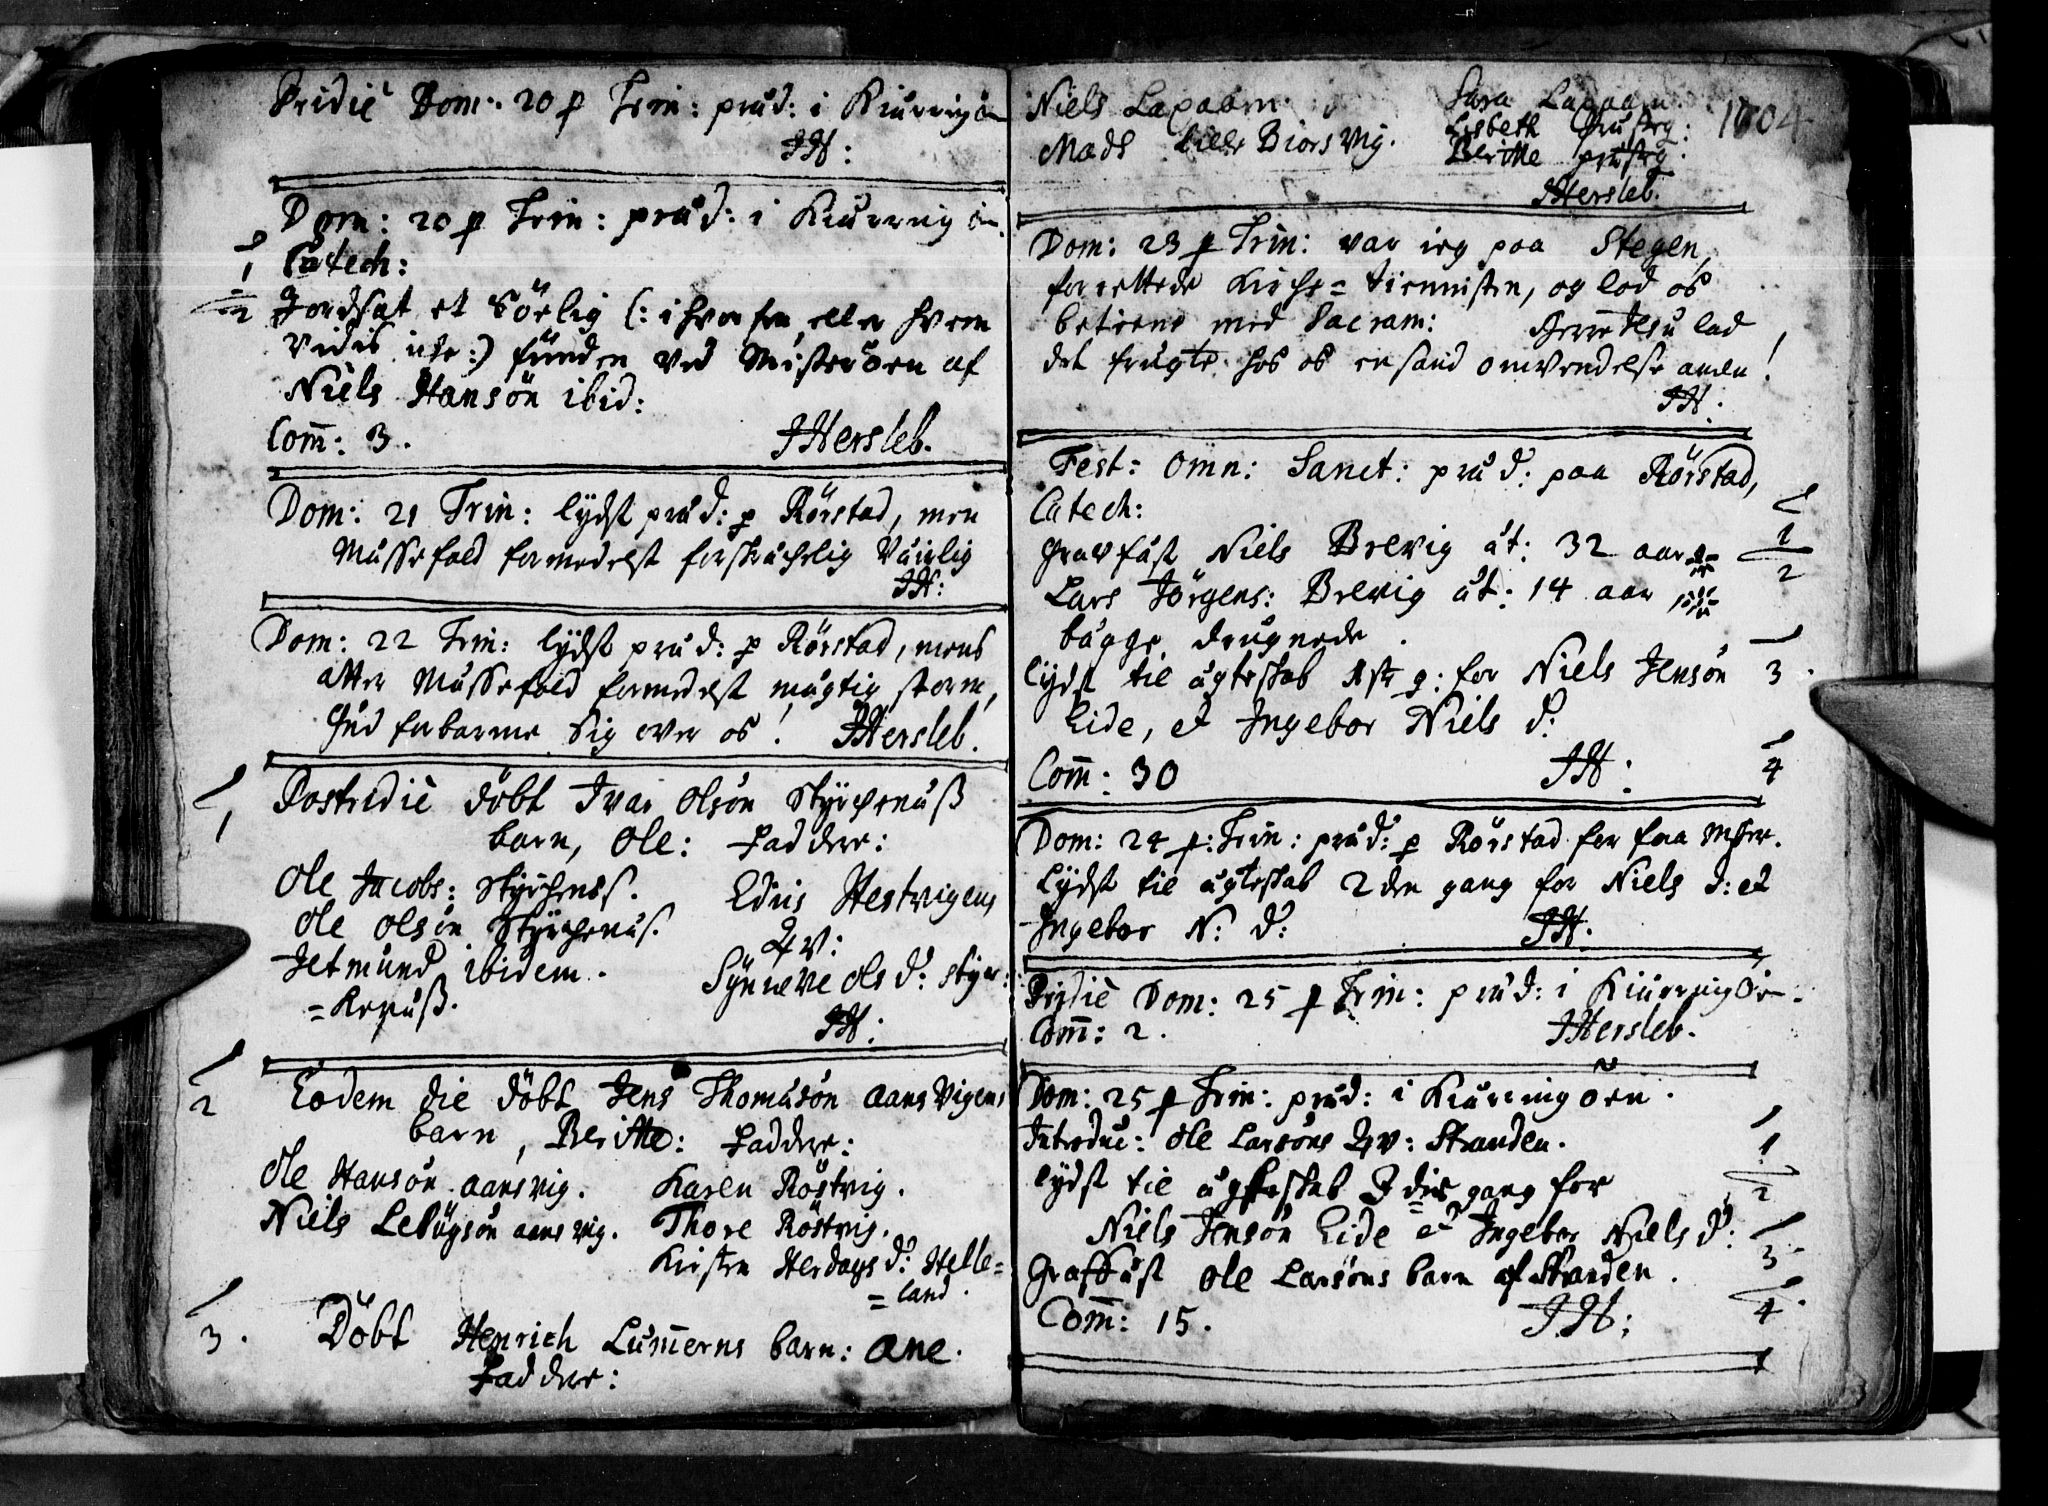 Pridiè Dom: 20 p Trin: præd: i Kiærringøn
JH:
Dom: 20 p Trin: præd: i Kiærringøn.
1 Catech:
2 Jordsat et Söelig (: ihvorfra, eller hvem
vides icke :) funden ved Misterøen af
Niels Hansön ibid:
Com̄: 3. JHersleb.
Dom: 21 Trin: lydst præd: p Rörstad, men
Messefald formedelst forskrechelig Vaierlig
JH:
Dom: 22 Trin: lydst præd: p Rörstad, mens
atter Messefald formedelst mægtig storm,
Gud forbarme sig over os! JHersleb.
1 Postridiè döbt Ivar Olsön Styrchesnæß
barn, Ole: Faddere:
Ole Jacobs: Styrchesnes. Edus Hestvigens
Ole Olsön Styrchesnæs. Qv:
Jetmund ibidem. Synneve Ols D: Styr:
=kesnæß.
JH:
2 Eodem die döbt Jens Thomæsön Aansvigens
barn, Beritte: Faddere:
Ole Hansön Aansvig. Karen Röstvig.
Niels Ledügsön Aansvig. Thore Röstvig.
Kirsten Herdags D: Helle=
=land.
3. Döbt Henrich Lum̄erns barn: Ane.
Faddere:
Niels Lapaam Sara Lapaam 1704
Mads Lille Biorsvig. Lisbeth
Beritte
JHersleb.
Dom: 23 p Trin: var ieg paa Stegen,
forrettede Kirche=tiennisten, og lod os
betiene med Sacram: Herre Jesu lad
det frugte hos os en sand omvendelse amen!
JH:
Fest: Omn: Sanct: præd: paa Rörstad,
Catech: 1
Gravfæst Niels Brevig æt: 32 aar 2
Lars Jörgens: Brevig æt: 14 aar
begge druknede.
lydst til ægteskab 1ste g: for Niels Jensön 3.
Eide, et Ingebor Niels D:
Com̄: 30 JH: 4
Dom: 24 p: Trin: præd: p Rörstad for faa
Lydst til ægteskab 2den gang for Niels J: et
Ingebor N: D: JH:
Pridiè Dom: 25 p Trin: præd: i Kiærringöe.
Com̄: 2. JHersleb.
Dom: 25 p Trin: præd: i Kiærringöen.
Introduc: Ole Larsöns Qv: Stranden. 1
lydst til ægteskab 3die gang for 2
Niels Jensön Eide et Ingebor Niels D:
Graffæst Ole Larsöns barn af Stranden. 3.
Com̄: 15. JH: 4.